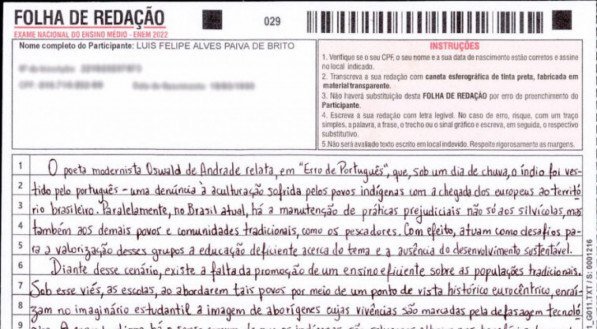 FOLHA DE REDAÇÃO
EXAME NACIONAL DO ENSINO MÉDIO - ENEM 2022
029
Nome completo do Participante: LUIS FELIPE ALVES PAIVA DE BRITO
INSTRUÇÕES
1. Verifique se o seu CPF, o seu nome e a sua data de nascimento estão corretos e assine no local indicado.
2. Transcreva a sua redação com caneta esferográfica de tinta preta, fabricada em material transparente.
3. Não haverá substituição desta FOLHA DE REDAÇÃO por erro de preenchimento do Participante.
4. Escreva a sua redação com letra legível. No caso de erro, risque, com um traço simples, a palavra, a frase, o trecho ou o sinal gráfico e escreva, em seguida, o respectivo substitutivo.
5. Não será avaliado texto escrito em local indevido. Respeite rigorosamente as margens.
1 O poeta modernista Oswald de Andrade relata, em "Erro de Português", que, sob um dia de chuva, o índio foi ves-
2 tido pelo português - uma denúncia à aculturação sofrida pelos povos indígenas com a chegada dos europeus ao territó-
3 rio brasileiro. Paralelamente, no Brasil atual, há a manutenção de práticas prejudiciais não só aos silvícolas, mas
4 também aos demais povos e comunidades tradicionais, como os pescadores. Com efeito, atuam como desafios pa-
5 ra a valorização desses grupos a educação deficiente acerca do tema e a ausência do desenvolvimento sustentável.
6 Diante desse cenário, existe a falta da promoção de um ensino eficiente sobre as populações tradicionais.
7 Sob esse viés, as escolas, ao abordarem tais povos por meio de um ponto de vista histórico eurocêntrico, enraí-
8 zam no imaginário estudantil a imagem de aborígenes cujas vivências são marcadas pela defasagem tecnoló